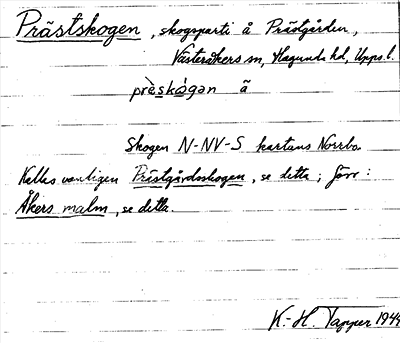 Prästskogen, skogsparti å Prästgården,
Västeråkers sn, Hagunda hd, Upps. l.
prè̀skógan ā̃
Skogen N-NV-S kartans Norrbo.
Kallas vanligen Prästgårdsskogen, se detta; jämr:
Åkers malm, se detta.
K.-H. Tapper 1944